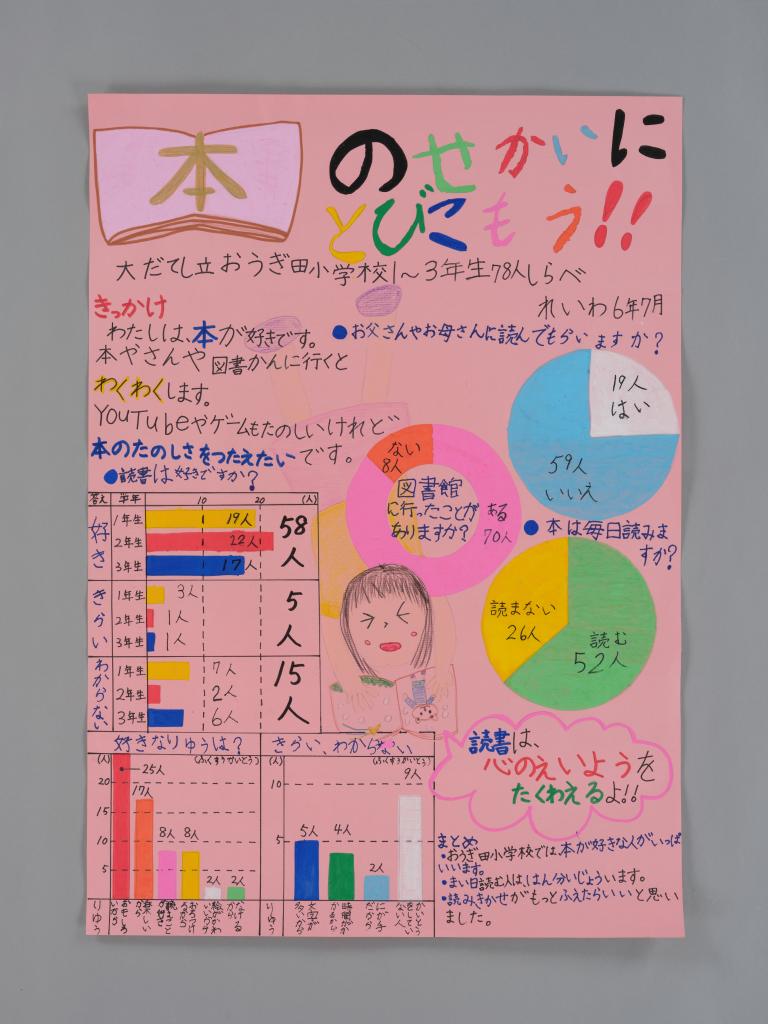 本
のせかいに
とびこもう!!
大だてし立おうぎ田小学校1~3年生78人しらべ
れいわ6年7月
きっかけ
わたしは、本が好きです。
本やさんや図書かんに行くと
わくわくします。
YouTubeやゲームもたのしいけれど
本のたのしさをつたえたいです。
●お父さんやお母さんに読んでもらいますか?
19人
はい
59人
いいえ
ない
8人
図書館
に行ったことが
ありますか?
ある
70人
●本は毎日読みま
すか?
読まない
26人
読む
52人
●読書は好きですか?
答え 学年 10 20 (人)
好き
1年生 19人
2年生 22人
3年生 17人
58人
きらい
1年生 3人
2年生 1人
3年生 1人
5人
わからない
1年生 7人
2年生 2人
3年生 6人
15人
好きなりゆうは?
(人) (ふくすうかいとう)
20
15
10
5
25人
17人
8人
8人
2人
2人
りゆう
おもしろいから
楽しいから
きらい、わからない
(人) (ふくすうかいとう)
10
5
5人
4人
2人
9人
りゆう
文字が多いから
時間がかかるから
にが手だから
かいとうをしていない人
読書は、
心のえいようを
たくわえるよ!!
まとめ
・おうぎ田小学校では、本が好きな人がいっぱ
いいます。
・まい日読む人は、はん分いじょういます。
・読みきかせがもっとふえたらいいと思い
ました。